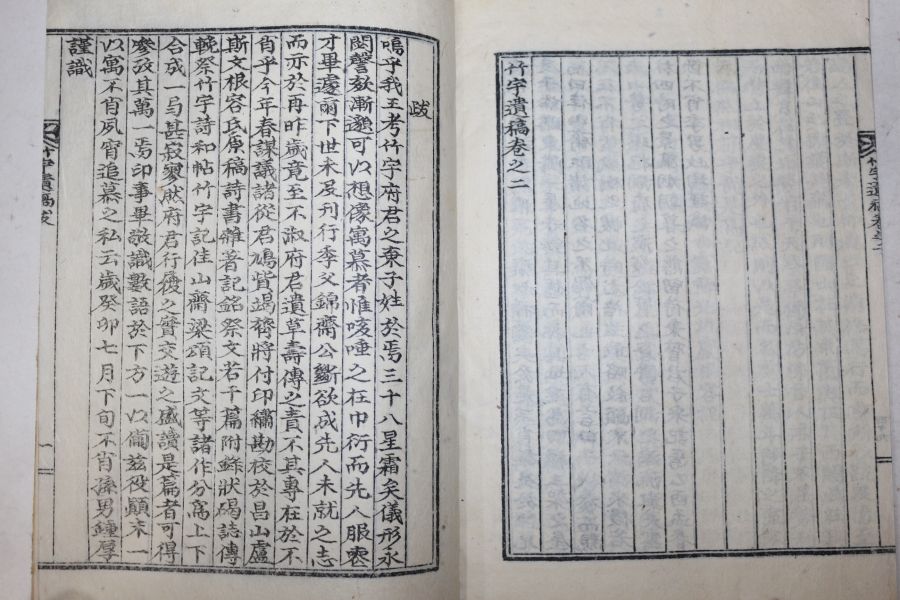 竹宇遺稿卷之二
竹宇遺稿卷之二
跋
嗚乎我王考竹宇府君之棄子姓於焉三十八星霜矣儀形永
閟謦欬漸邈可以想像寓慕者惟咳唾之在巾衍而先人服喪
才畢遽爾下世未及刊行季父錦齋公斷欲成先人未就之志
而亦於再昨歲竟至不淑府君遺草壽傳之責不其專在於不
肖乎今年春謀議諸從君鳩貲竭將付印繡勘校於昌山盧
斯文根容氏原稿詩書雜著記銘祭文若干篇附錄狀碣誌傳
輓祭竹宇詩和帖竹宇記佳山齋梁頌記文等諸作分寫上下
合成一甚寂寥然府君行履之實交遊之盛讀是篇者可得
參攷其萬一焉印事畢敬識數語於下方一以備玆役顚末一
以寓不肖夙宵追慕之私云歲癸卯七月下旬不肖孫男鍾厚
謹識
竹宇遺稿跋
一